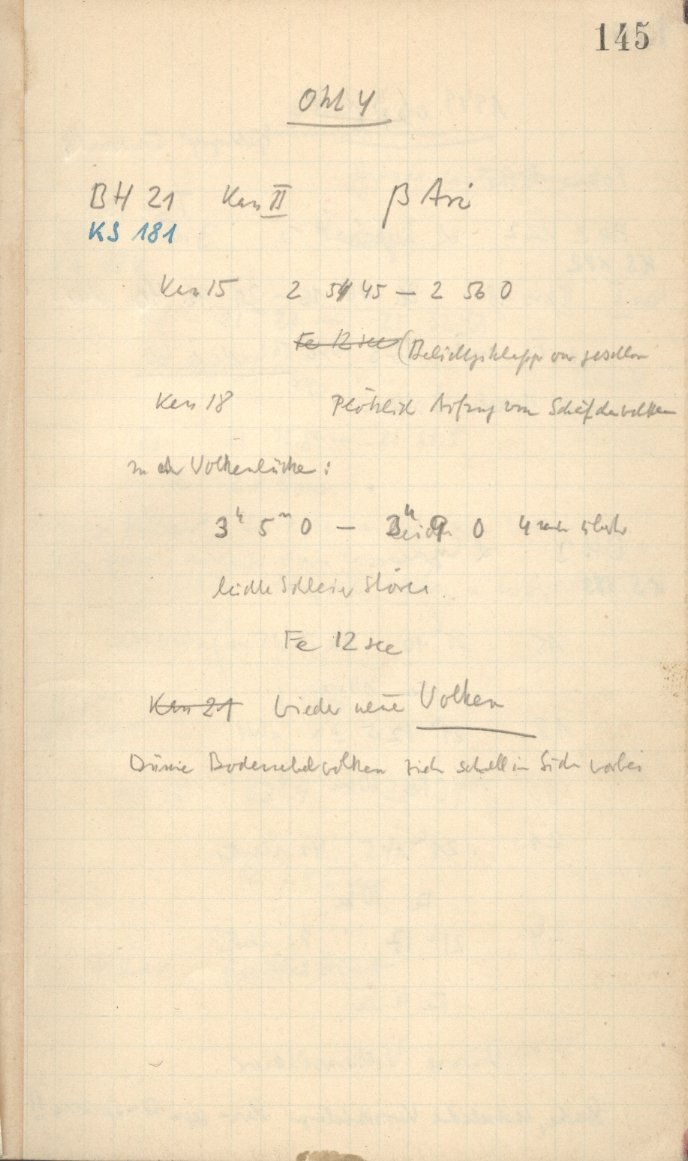 145
Ohl 4
BH 21 Kass II β Ari
KS 181
Kass 15 2 54 45 — 2 56 0
Fe 12 sec (Belichtgsklappe vor
Kass 18 Plötzlich Aufzug von Schäfchenwolken
in der Wolkenlücke:
3h 5m 0 — 3h 9 0 4
leichte Schleier stören.
Fe 12 sec
Kass 21 Wieder neue Wolken
Dünne Bodennebelwolken ziehn schnell im Süden vorbei